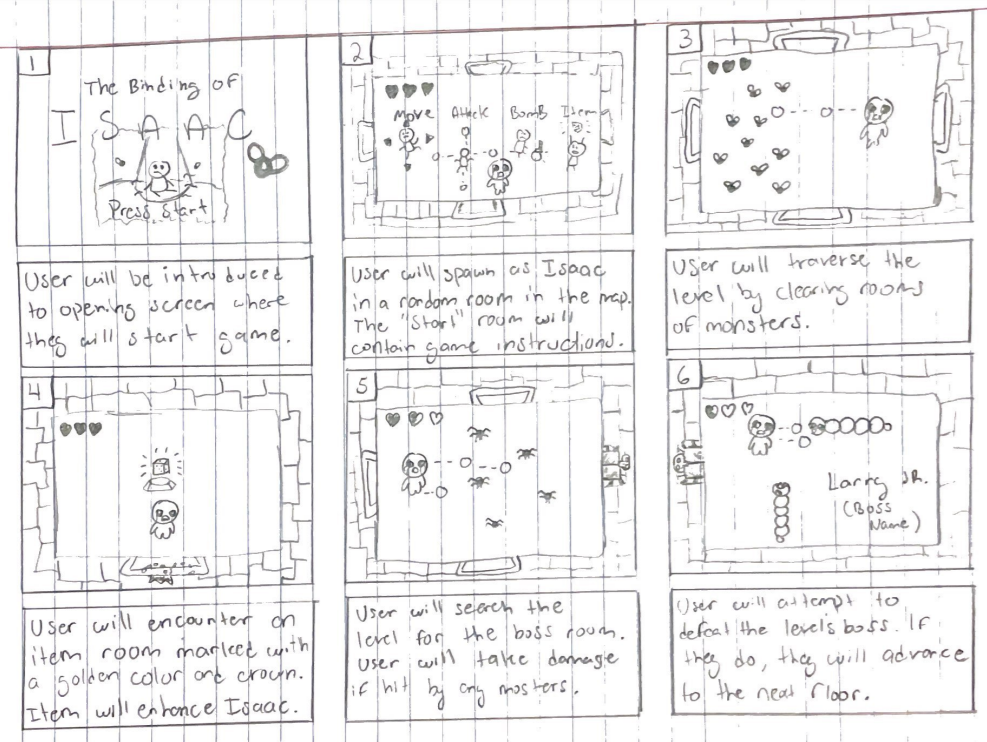 1
The Binding of
ISAAC
Press Start
User will be introduced
to opening screen where
they will start game.
2
Move Attack Bomb Item
User will spawn as Isaac
in a random room in the map.
The "Start" room will
contain game instructions.
3
User will traverse the
level by clearing rooms
of monsters.
4
User will encounter an
item room marked with
a golden color and crown.
Item will enhance Isaac.
5
User will search the
level for the boss room.
User will take damage
if hit by any mosters.
6
Larry JR.
(Boss
Name)
User will attempt to
defeat the levels boss. If
they do, they will advance
to the next floor.